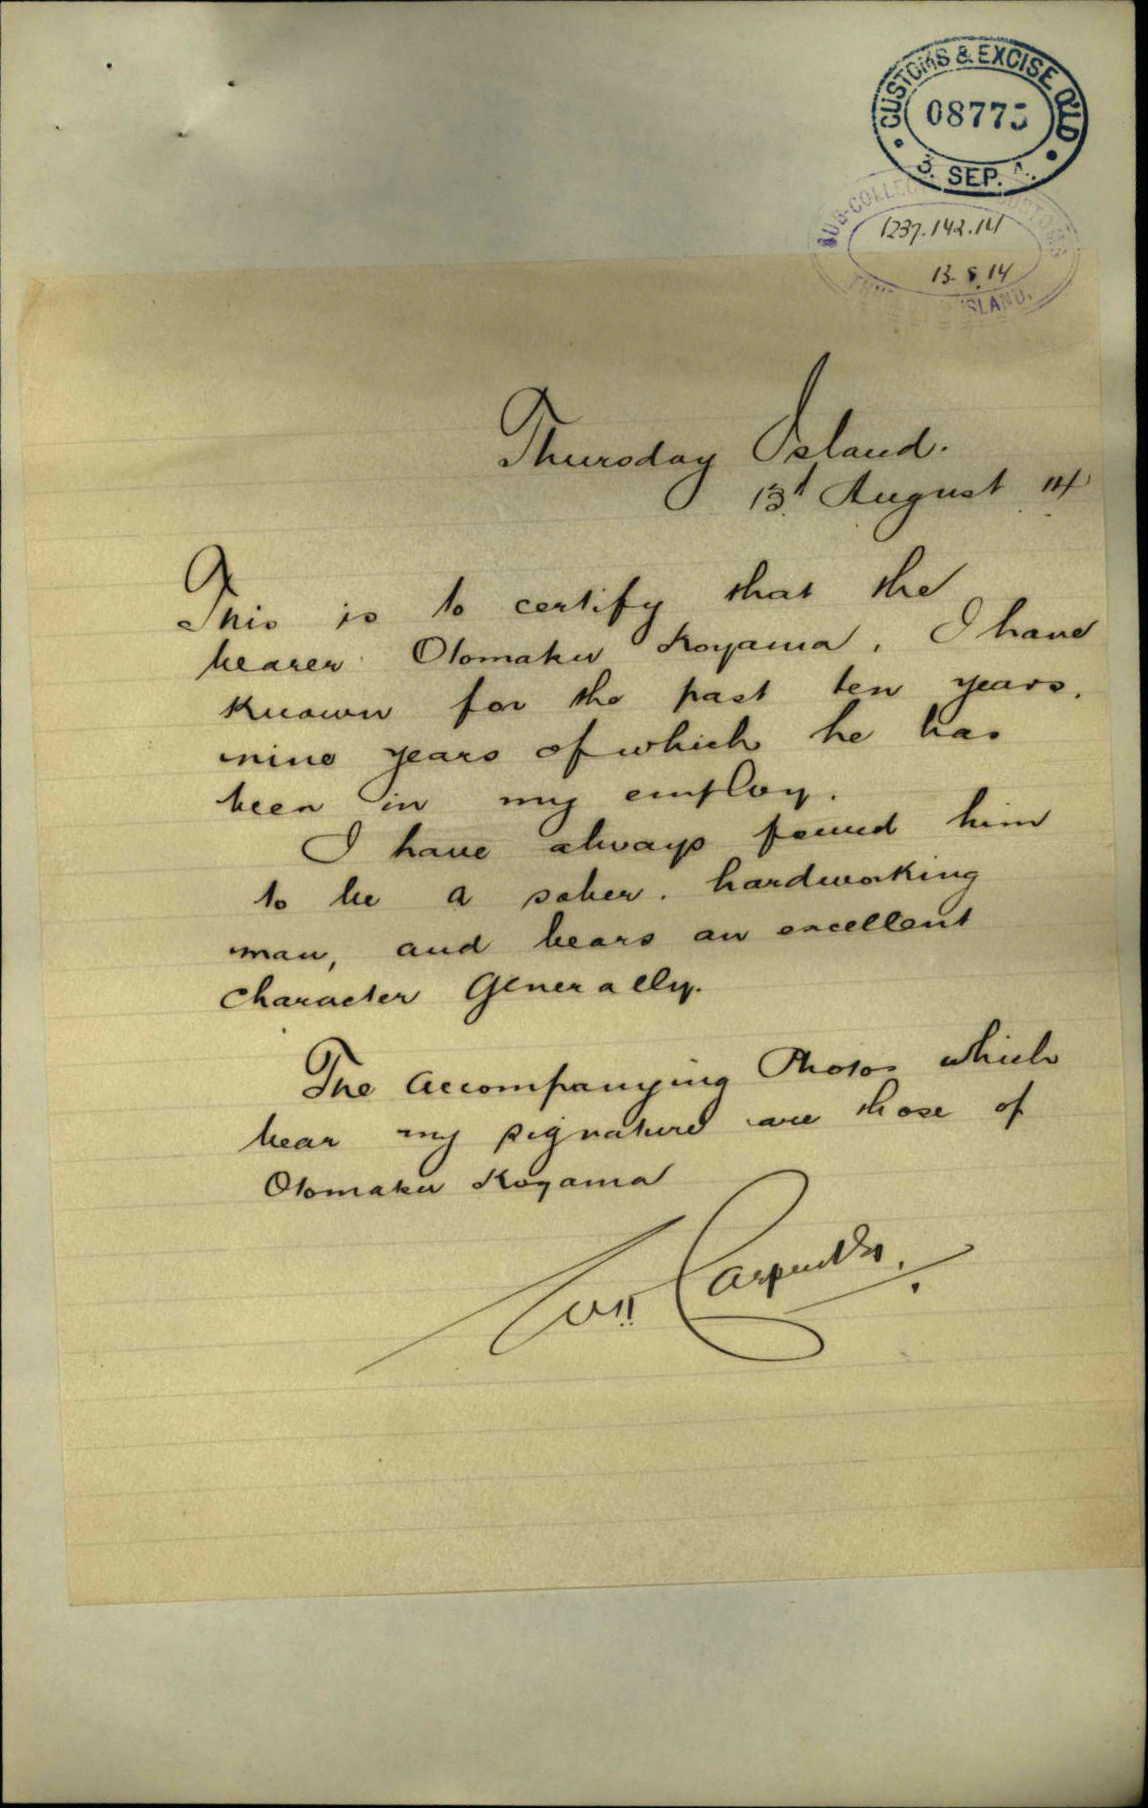 CUSTOMS & EXCISE Q'LD
08775
3. SEP.
SUB-COLLEC CUSTOMS
1237.142.14
13.8.14
ISLAND.
Thursday Island.
13th August 14
This is to certify that the
bearer Otomaku Koyama, I have
known for the past ten years.
nine years of which he has
been in my employ.
I have always found him
to be a sober. hardworking
man, and bears an excellent
character Generally.
The accompanying Photos which
bear my signature are those of
Otomaku Koyama
Carpenter.